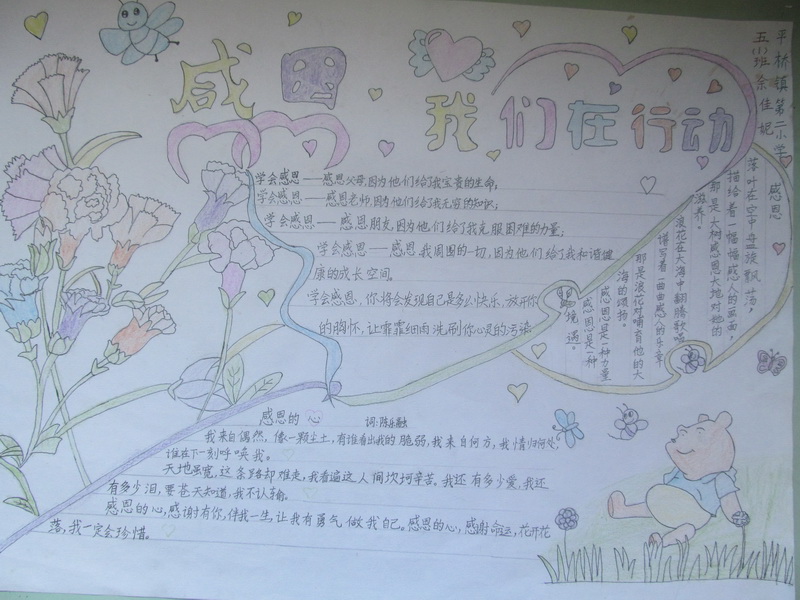 感恩
我们在行动
平桥镇第二小学
五(1)班 佳妮
学会感恩——感恩父母,因为他们给了我宝贵的生命,
学会感恩——感恩老师,因为他们给了我无穷的知识;
学会感恩——感恩朋友,因为他们给了我克服困难的力量;
学会感恩——感恩我周围的一切,因为他们给了我和谐健
康的成长空间。
学会感恩,你将会发现自己是多么快乐,放开你
的胸怀,让霏霏细雨洗刷你心灵的污染
感恩
落叶在空中盘旋飘荡,
描绘着一幅幅感人的画面,
那是大树感恩大地对她的
滋养。
浪花在大海中翻腾歌唱
谱写着一曲曲感人的乐章
那是浪花对哺育他的大
海的颂扬。
感恩是一种力量
感恩是一种
境遇。
感恩的心
词:陈乐融
我来自偶然,像一颗尘土,有谁看出我的脆弱,我来自何方,我情归何处,
谁在下一刻呼唤我。
天地虽宽,这条路却难走,我看遍这人间坎坷辛苦。我还有多少爱,我还
有多少泪,要苍天知道,我不认输。
感恩的心,感谢有你,伴我一生,让我有勇气做我自己。感恩的心,感谢命运,花开花
落,我一定会珍惜。